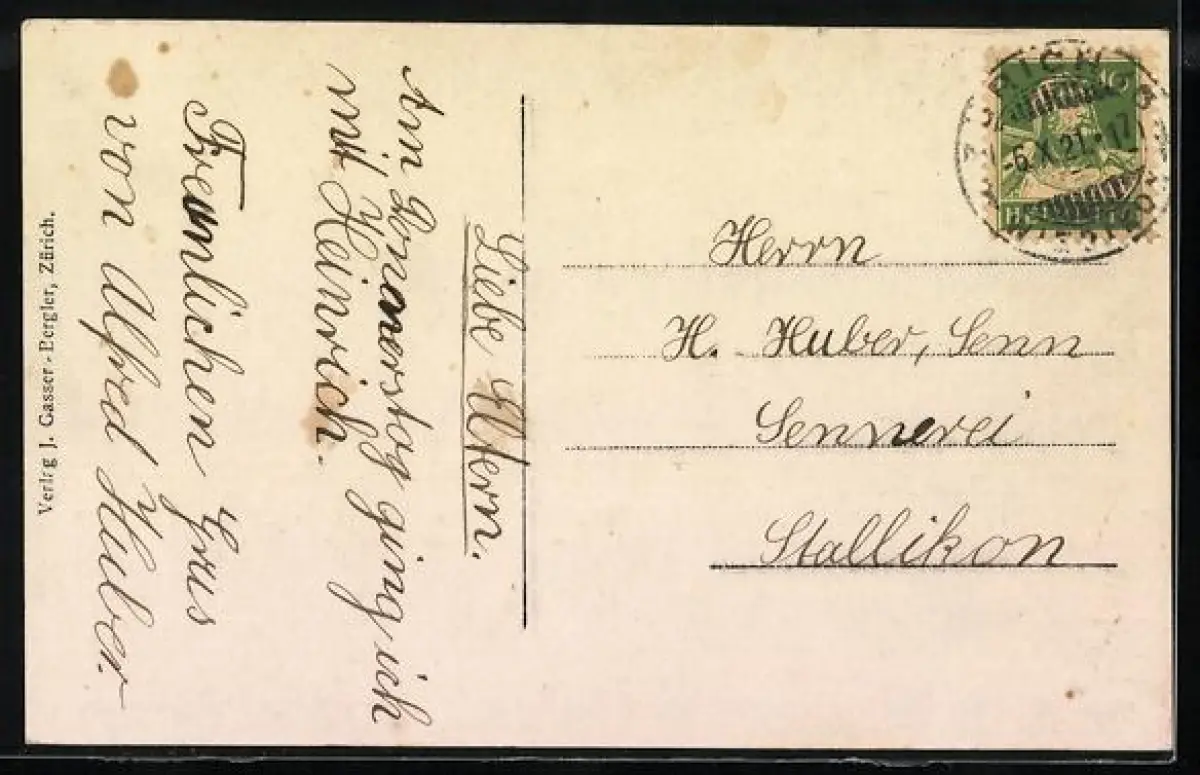 Liebe Eltern.
Am Donnerstag ging ich
mit Heinrich.
Freunlichen Grus
von Alfred Huber.
Verlag J. Gasser-Bergler, Zürich.
10
-6.X.21.-17
HELVETIA
Herrn
H. Huber, Senn
Sennerei
Stallikon